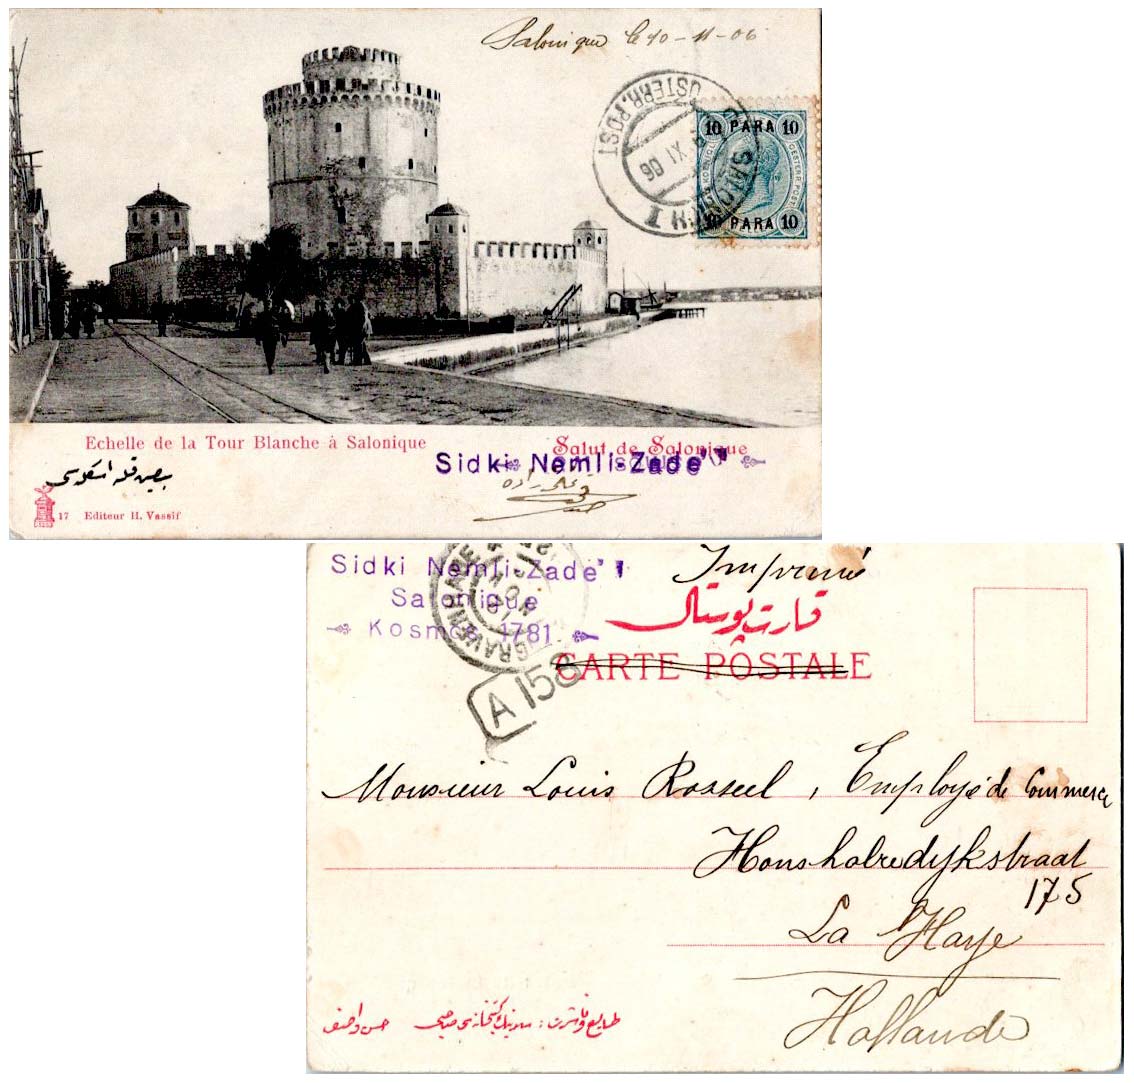 Salonique le 10-11-06
ÖSTERR. POST
XI 06
SALONICH I
10 PARA 10
10 PARA 10
Echelle de la Tour Blanche à Salonique
Salut de Salonique
Sidki Nemli-Zadé
17 Editeur H. Vassif
Sidki Nemli-Zadé
Salonique
Kosmos 1781
Imprimé
قارت پوستال
CARTE POSTALE
GRAVENHAGE
NOV
A 158
Monsieur Louis Rosseel, Employé de Commerce
Honsholredijkstraat
175
La Haye
Hollande
حسن واصف